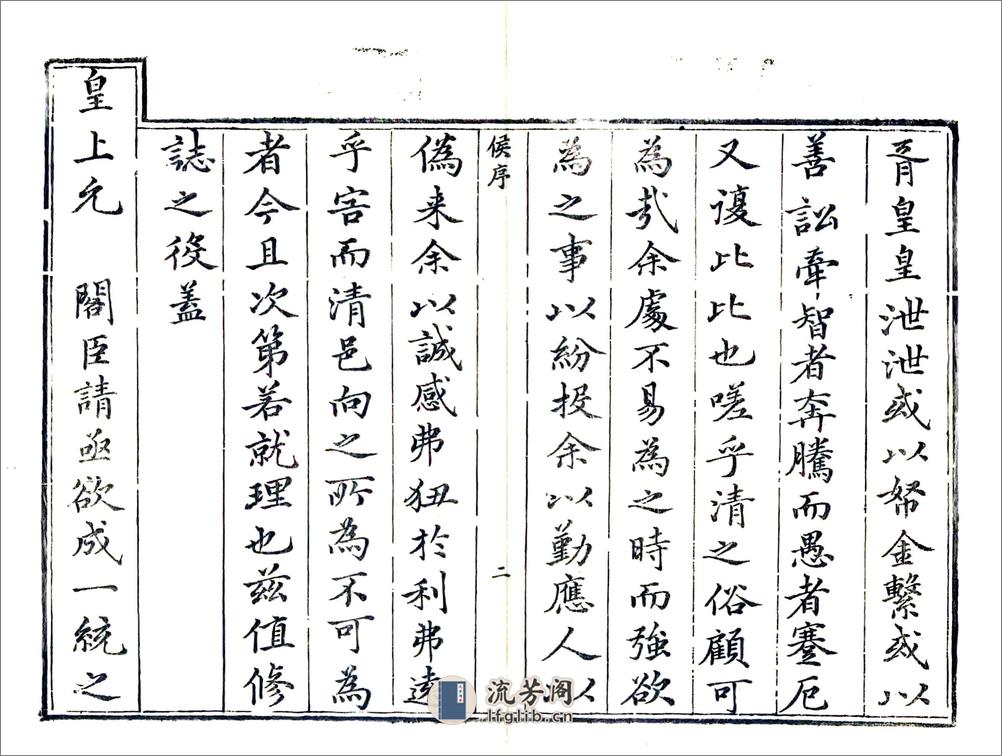 胥皇皇泄泄或以帑金繫或以
善訟牽智者奔騰而愚者蹇厄
又比比也嗟乎清之俗顧可
為哉余處不易為之時而強欲
為之事以紛投余以勤應人以
侯序
二
偽来余以誠感弗狃於利弗
乎害而清邑向之所為不可為
者今且次第若就理也兹值修
誌之役蓋
皇上允 閣臣請亟欲成一統之
流芳阁
lfglib.cn